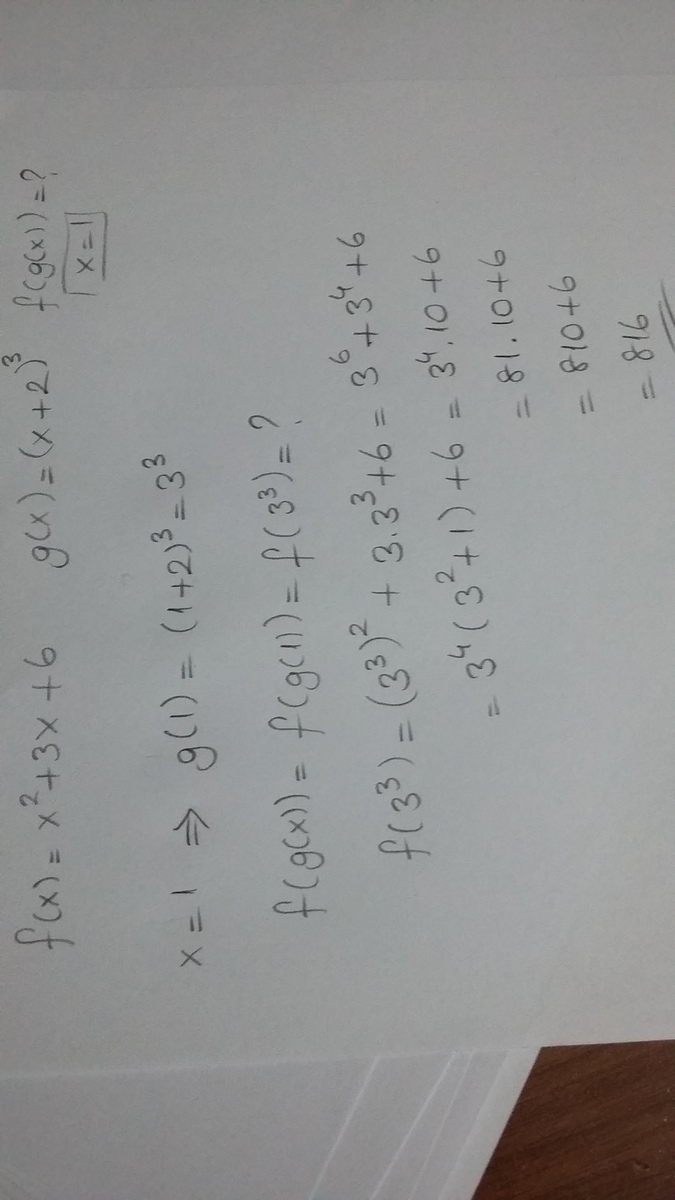 f(x) = x² + 3x + 6 g(x) = (x+2)³ f(g(x)) = ?
x = 1
x = 1 ⇒ g(1) = (1+2)³ = 3³
f(g(x)) = f(g(1)) = f(3³) = ?
f(3³) = (3³)² + 3.3³ + 6 = 3⁶ + 3⁴ + 6
= 3⁴(3² + 1) + 6 = 3⁴.10 + 6
= 81.10 + 6
= 810 + 6
= 816